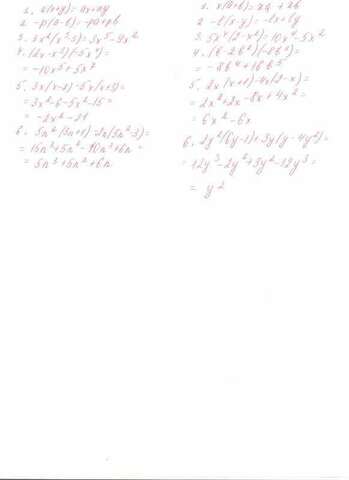 1. a(x+y)=ax+ay
2. -p(a-b)=-pa+pb
3. 3x²(x³-3)=3x⁵-9x²
4. (2x-x²)(-5x⁴)=
=-10x⁵+5x⁷
5. 3x(x-2)-5x(x+3)=
=3x²-6-5x²-15=
=-2x²-21
6. 5n²(3n+1)-2n(5n²-3)=
=15n³+5n²-10n³+6n=
=5n³+5n²+6n
1. x(a+b)=xa+xb
2. -c(x-y)=-cx+cy
3. 5x²(2-x²)=10x²-5x²
=-8b⁴+16b⁵
5. 2x(x+1)-4x(2-x)=
=2x²+2x-8x+4x²=
=6x²-6x
6. 2y²(6y-1)+3y(y-4y²)=
=12y³-2y²+3y²-12y³=
=y²